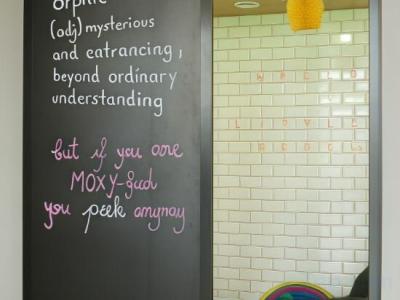 orphic
(adj) mysterious
and entrancing,
beyond ordinary
understanding
but if you are
MOXY-fied
you peek anyway